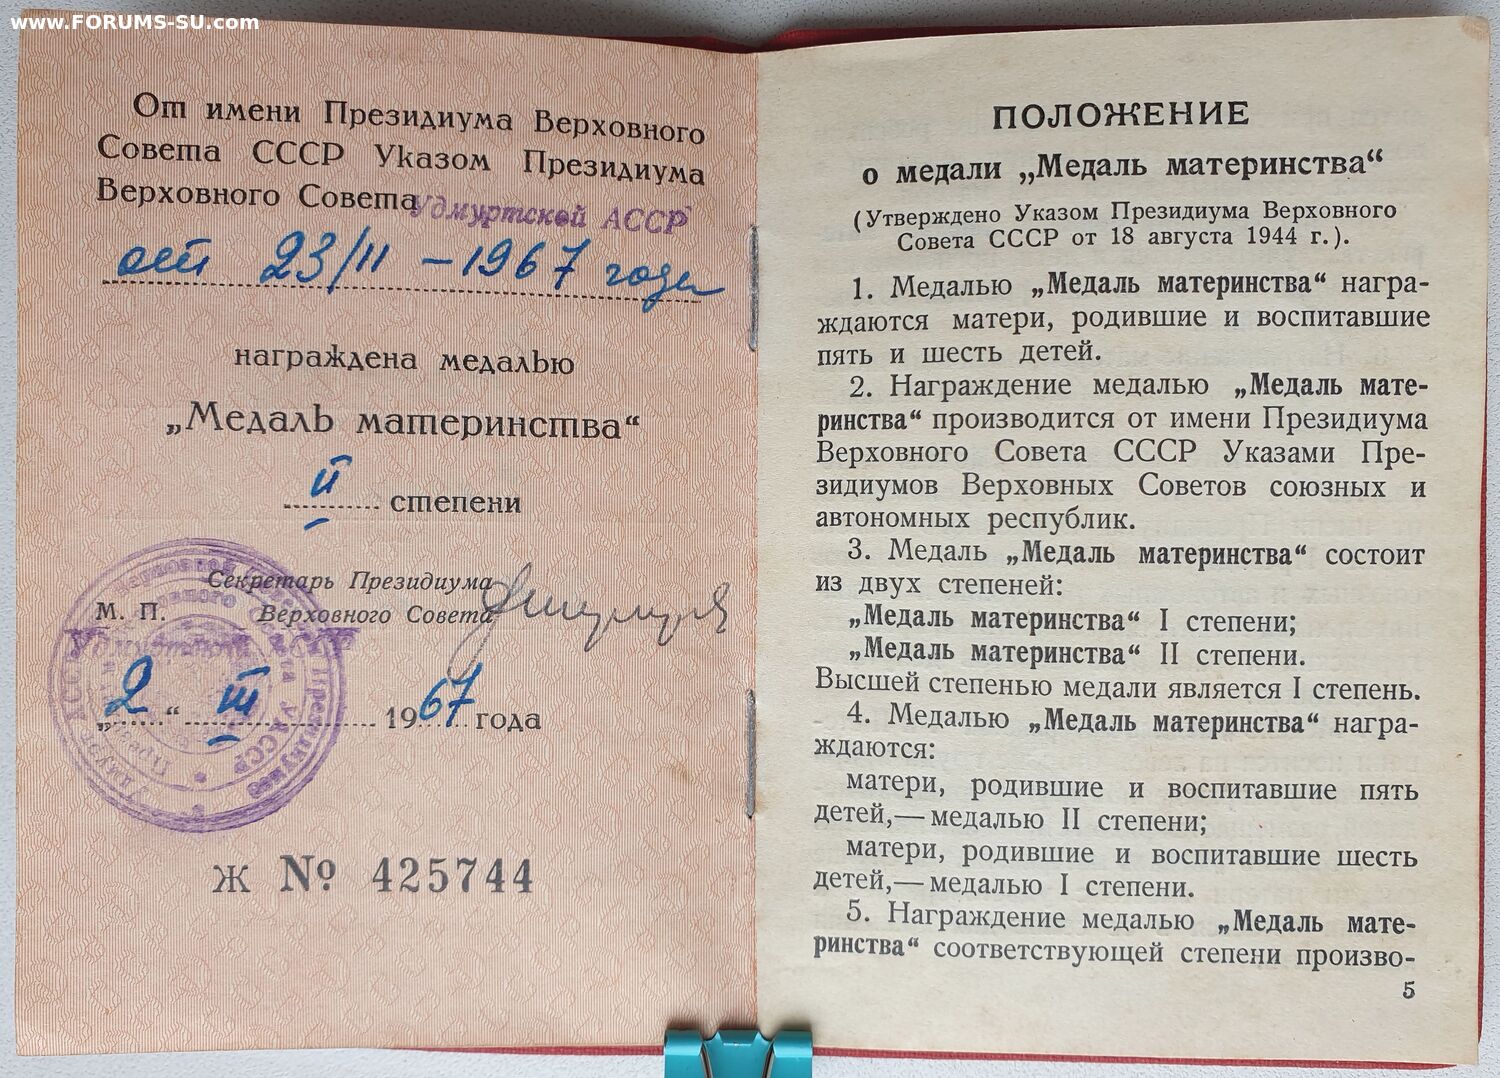 www.FORUMS-SU.com
От имени Президиума Верховного
Совета СССР Указом Президиума
Верховного Совета Удмуртской АССР
от 23/II – 1967 года
награждена медалью
„Медаль материнства“
II степени
Секретарь Президиума
М. П. Верховного Совета
Удмуртской АССР
„2“ III 1967 года
Ж № 425744
ПОЛОЖЕНИЕ
о медали „Медаль материнства“
(Утверждено Указом Президиума Верховного
Совета СССР от 18 августа 1944 г.).
1. Медалью „Медаль материнства“ награ-
ждаются матери, родившие и воспитавшие
пять и шесть детей.
2. Награждение медалью „Медаль мате-
ринства“ производится от имени Президиума
Верховного Совета СССР Указами Пре-
зидиумов Верховных Советов союзных и
автономных республик.
3. Медаль „Медаль материнства“ состоит
из двух степеней:
„Медаль материнства“ I степени;
„Медаль материнства“ II степени.
Высшей степенью медали является I степень.
4. Медалью „Медаль материнства“ награ-
ждаются:
матери, родившие и воспитавшие пять
детей,— медалью II степени;
матери, родившие и воспитавшие шесть
детей,— медалью I степени.
5. Награждение медалью „Медаль мате-
ринства“ соответствующей степени произво-
5